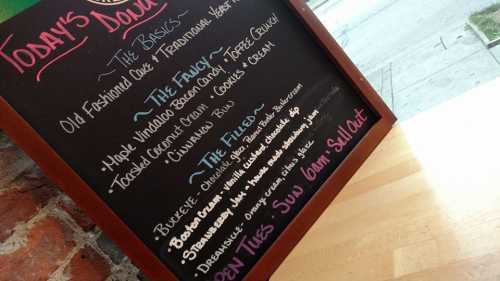 Today's Donu
~ The Basics ~
Old Fashioned Cake & Traditional Yeast
~ The Fancy ~
• Maple Vindaloo Bacon Candy • Toffee Crunch
• Toasted Coconut Cream • Cookies & Cream
• Cinnamon Bun
~ The Filled ~
• Buckeye - chocolate glaze, Peanut Butter Buttercream
• Boston Cream - vanilla custard chocolate dip
• Strawberry Jam - house made strawberry jam
• Dreamsicle - orange cream, citrus glaze
pen Tues - Sun 6am - Sell Out